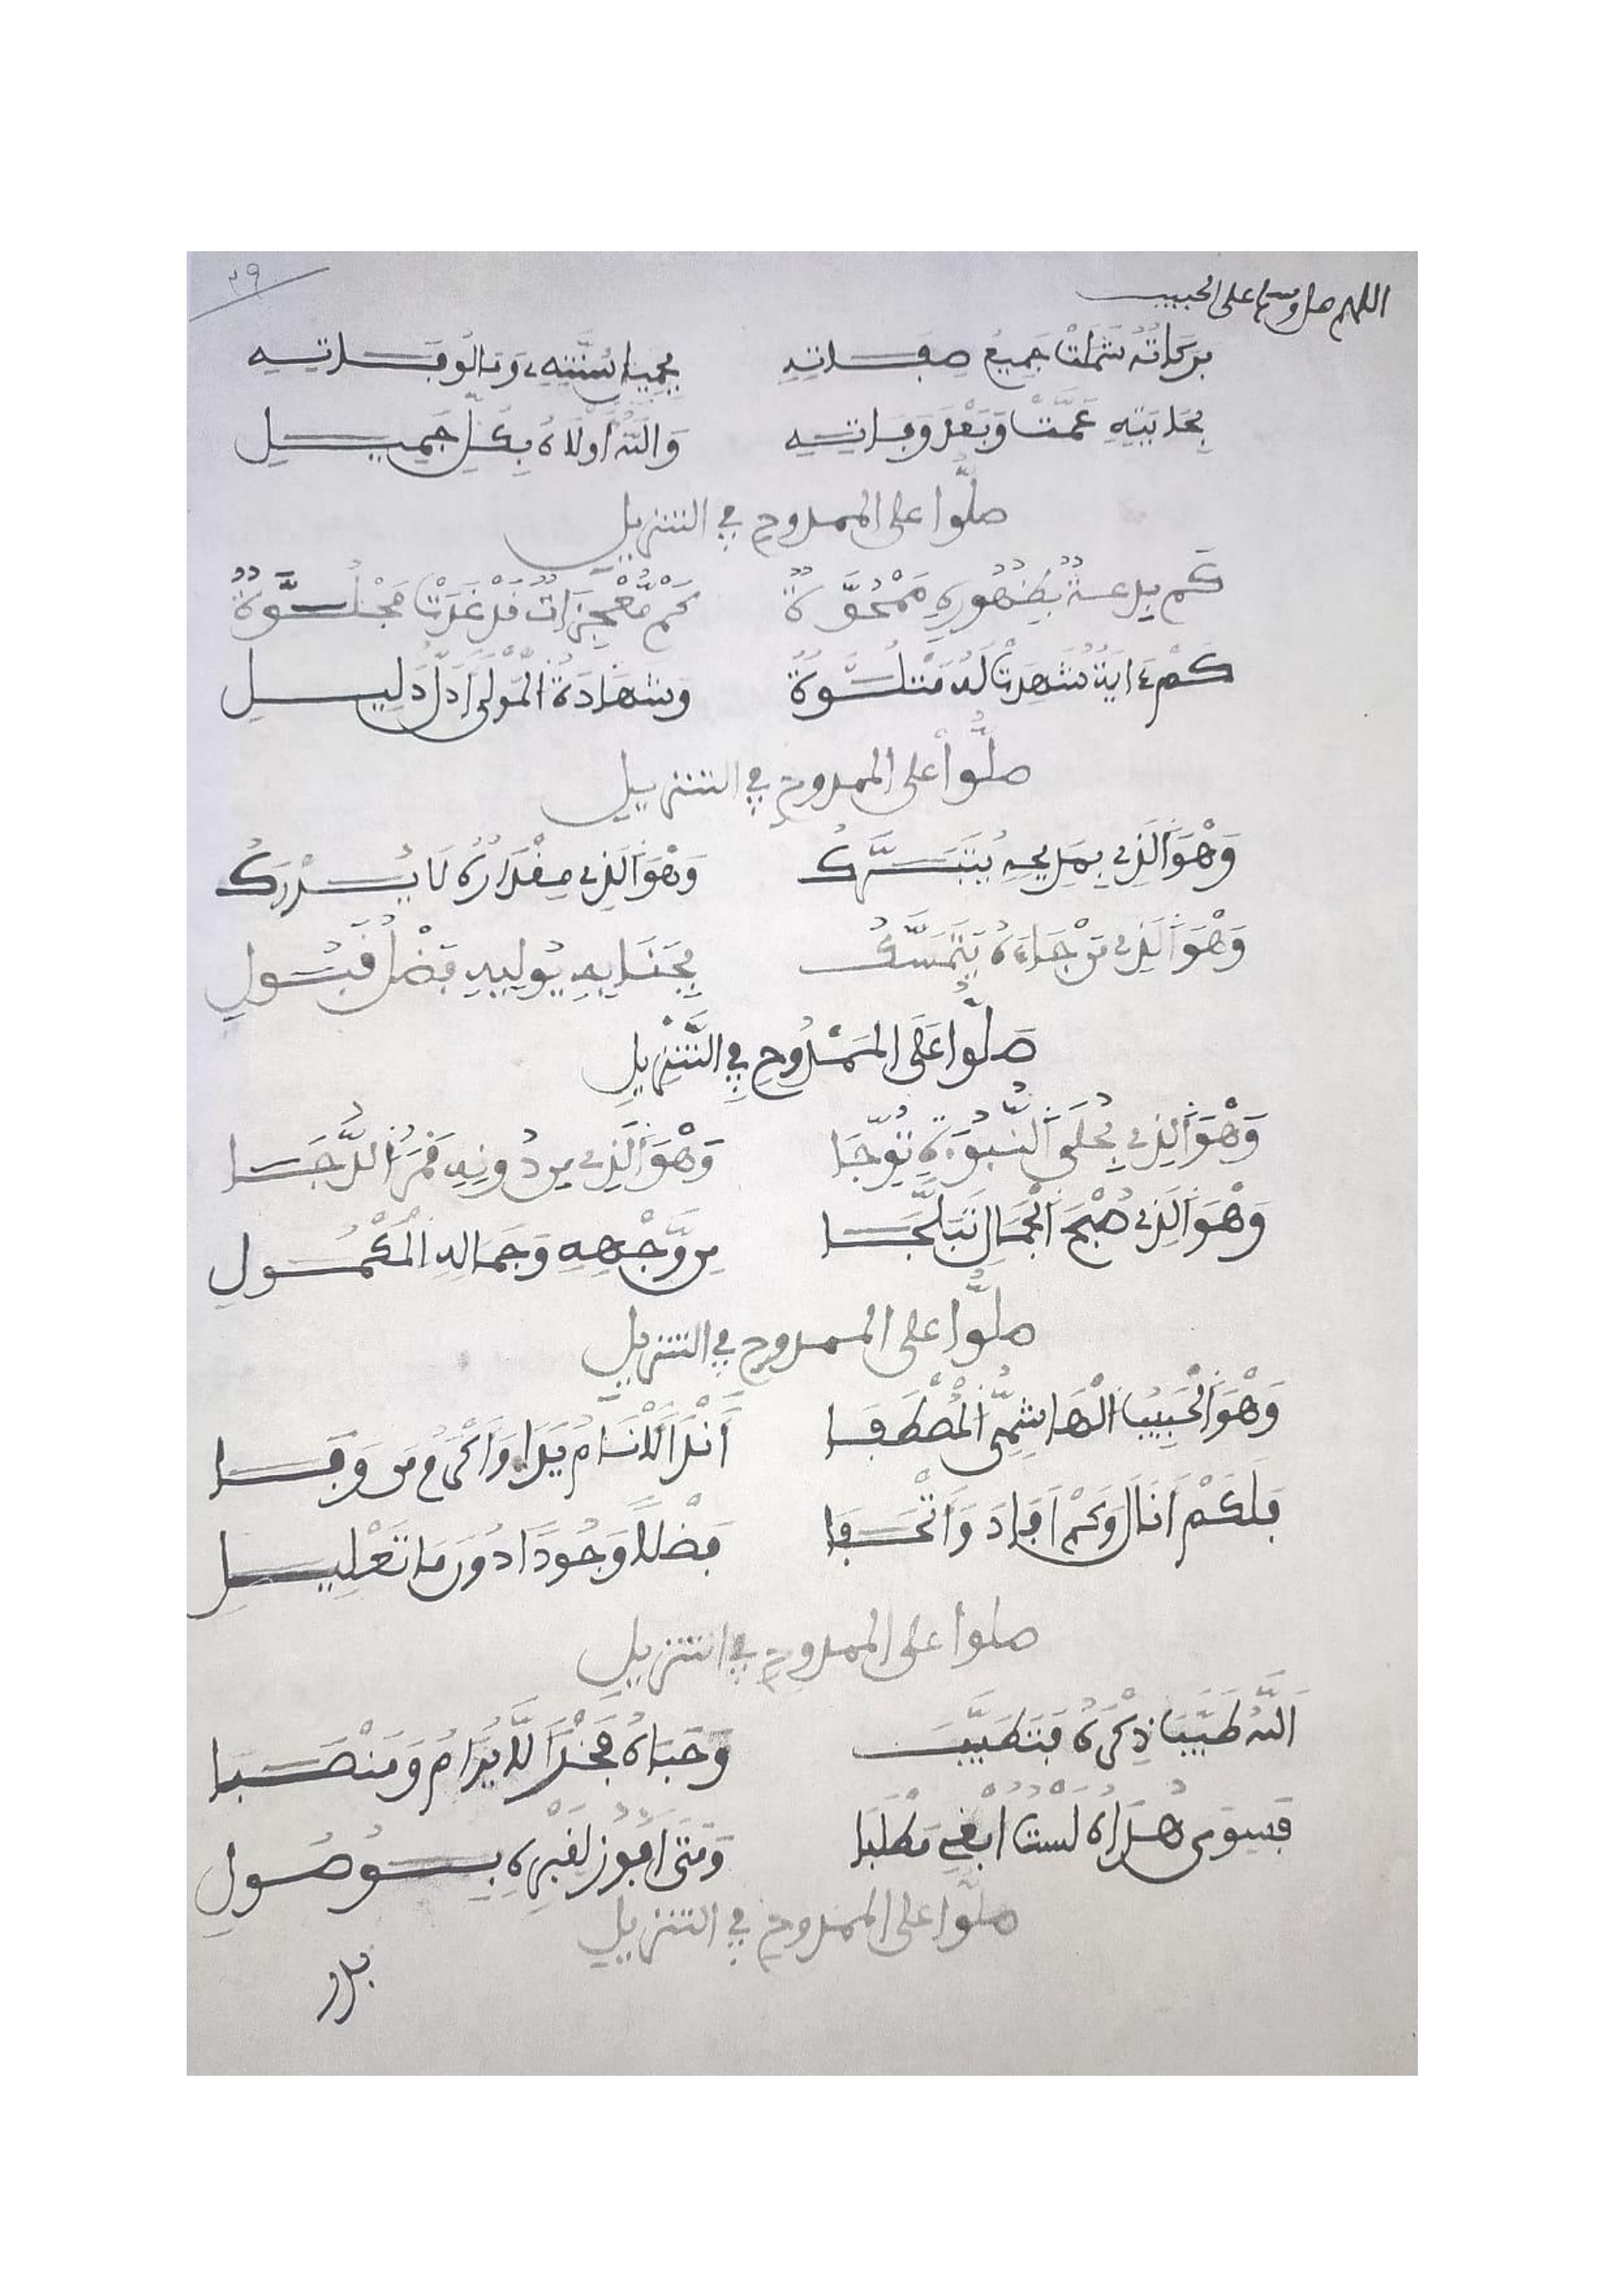 ٣٩
اللهم صل وسلم على الحبيب
بركاته شملت جميع صفاته بجميل سنته ومالوفاته
بحياته عمت وبعد وفاته والله أولاه بكل جميل
صلوا على الممدوح في التنزيل
كم بدعة بظهوره ممحوة كم معجزات قد غدت مجلوة
كم ءاية شهدت له متلوة وشهادة المولى أدل دليل
صلوا على الممدوح في التنزيل
وهو الذي بمديحه يتبرك وهو الذي مقداره لا يدرك
وهو الذي من جاءه يتمسك بجنابه يوليه فضل قبول
صلوا على الممدوح في التنزيل
وهو الذي بحلى النبوءة توجا وهو الذي من دونه قمر الدجا
وهو الذي صبح الجمال تبلجا من وجهه وجماله المكمول
صلوا على الممدوح في التنزيل
وهو الحبيب الهاشمي المصطفا أندا الأنام يدا وأكرم من وفا
فلكم أنال وكم أفاد وأتحفا فضلا وجودا دون ما تعليل
صلوا على الممدوح في التنزيل
الله طيب ذكره فتطيب وحباه مجدا لا يرام ومنصبا
فسوى هداه لست أبغي مطلبا ومتى أفوز لقبره بوصول
صلوا على الممدوح في التنزيل
بدر